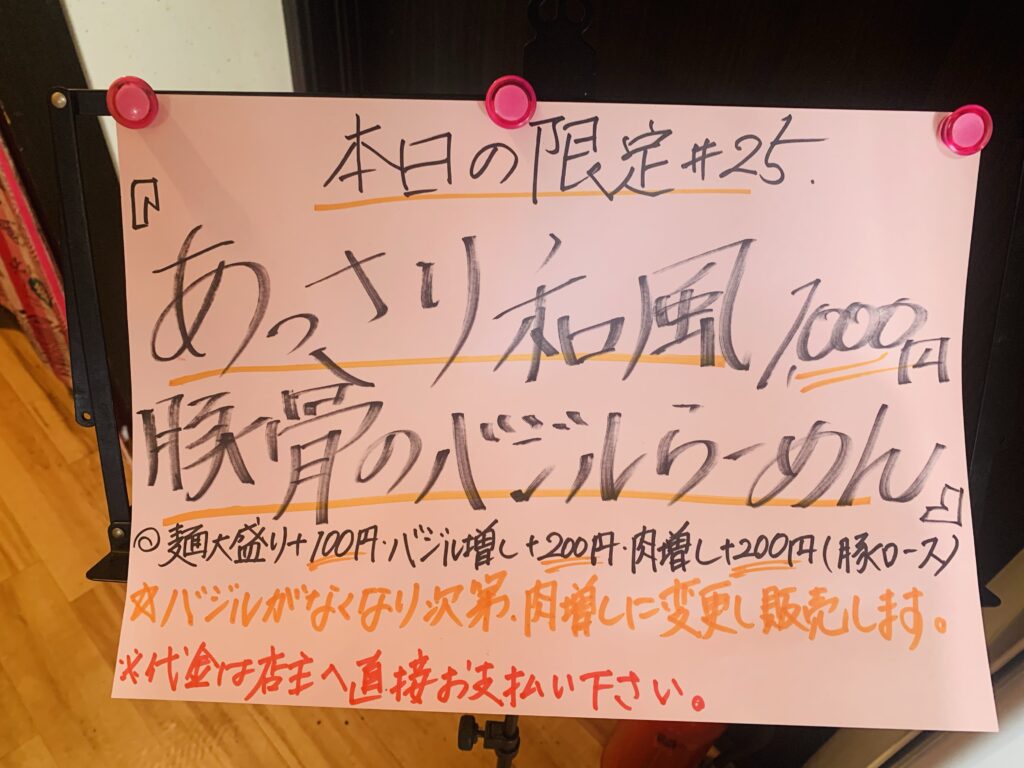 本日の限定#25.
『あっさり和風
豚骨のバジルらーめん』
1,000円
◎麺大盛り+100円・バジル増し+200円・肉増し+200円(豚ロース)
☆バジルがなくなり次第、肉増しに変更し販売します。
※代金は店主へ直接お支払い下さい。